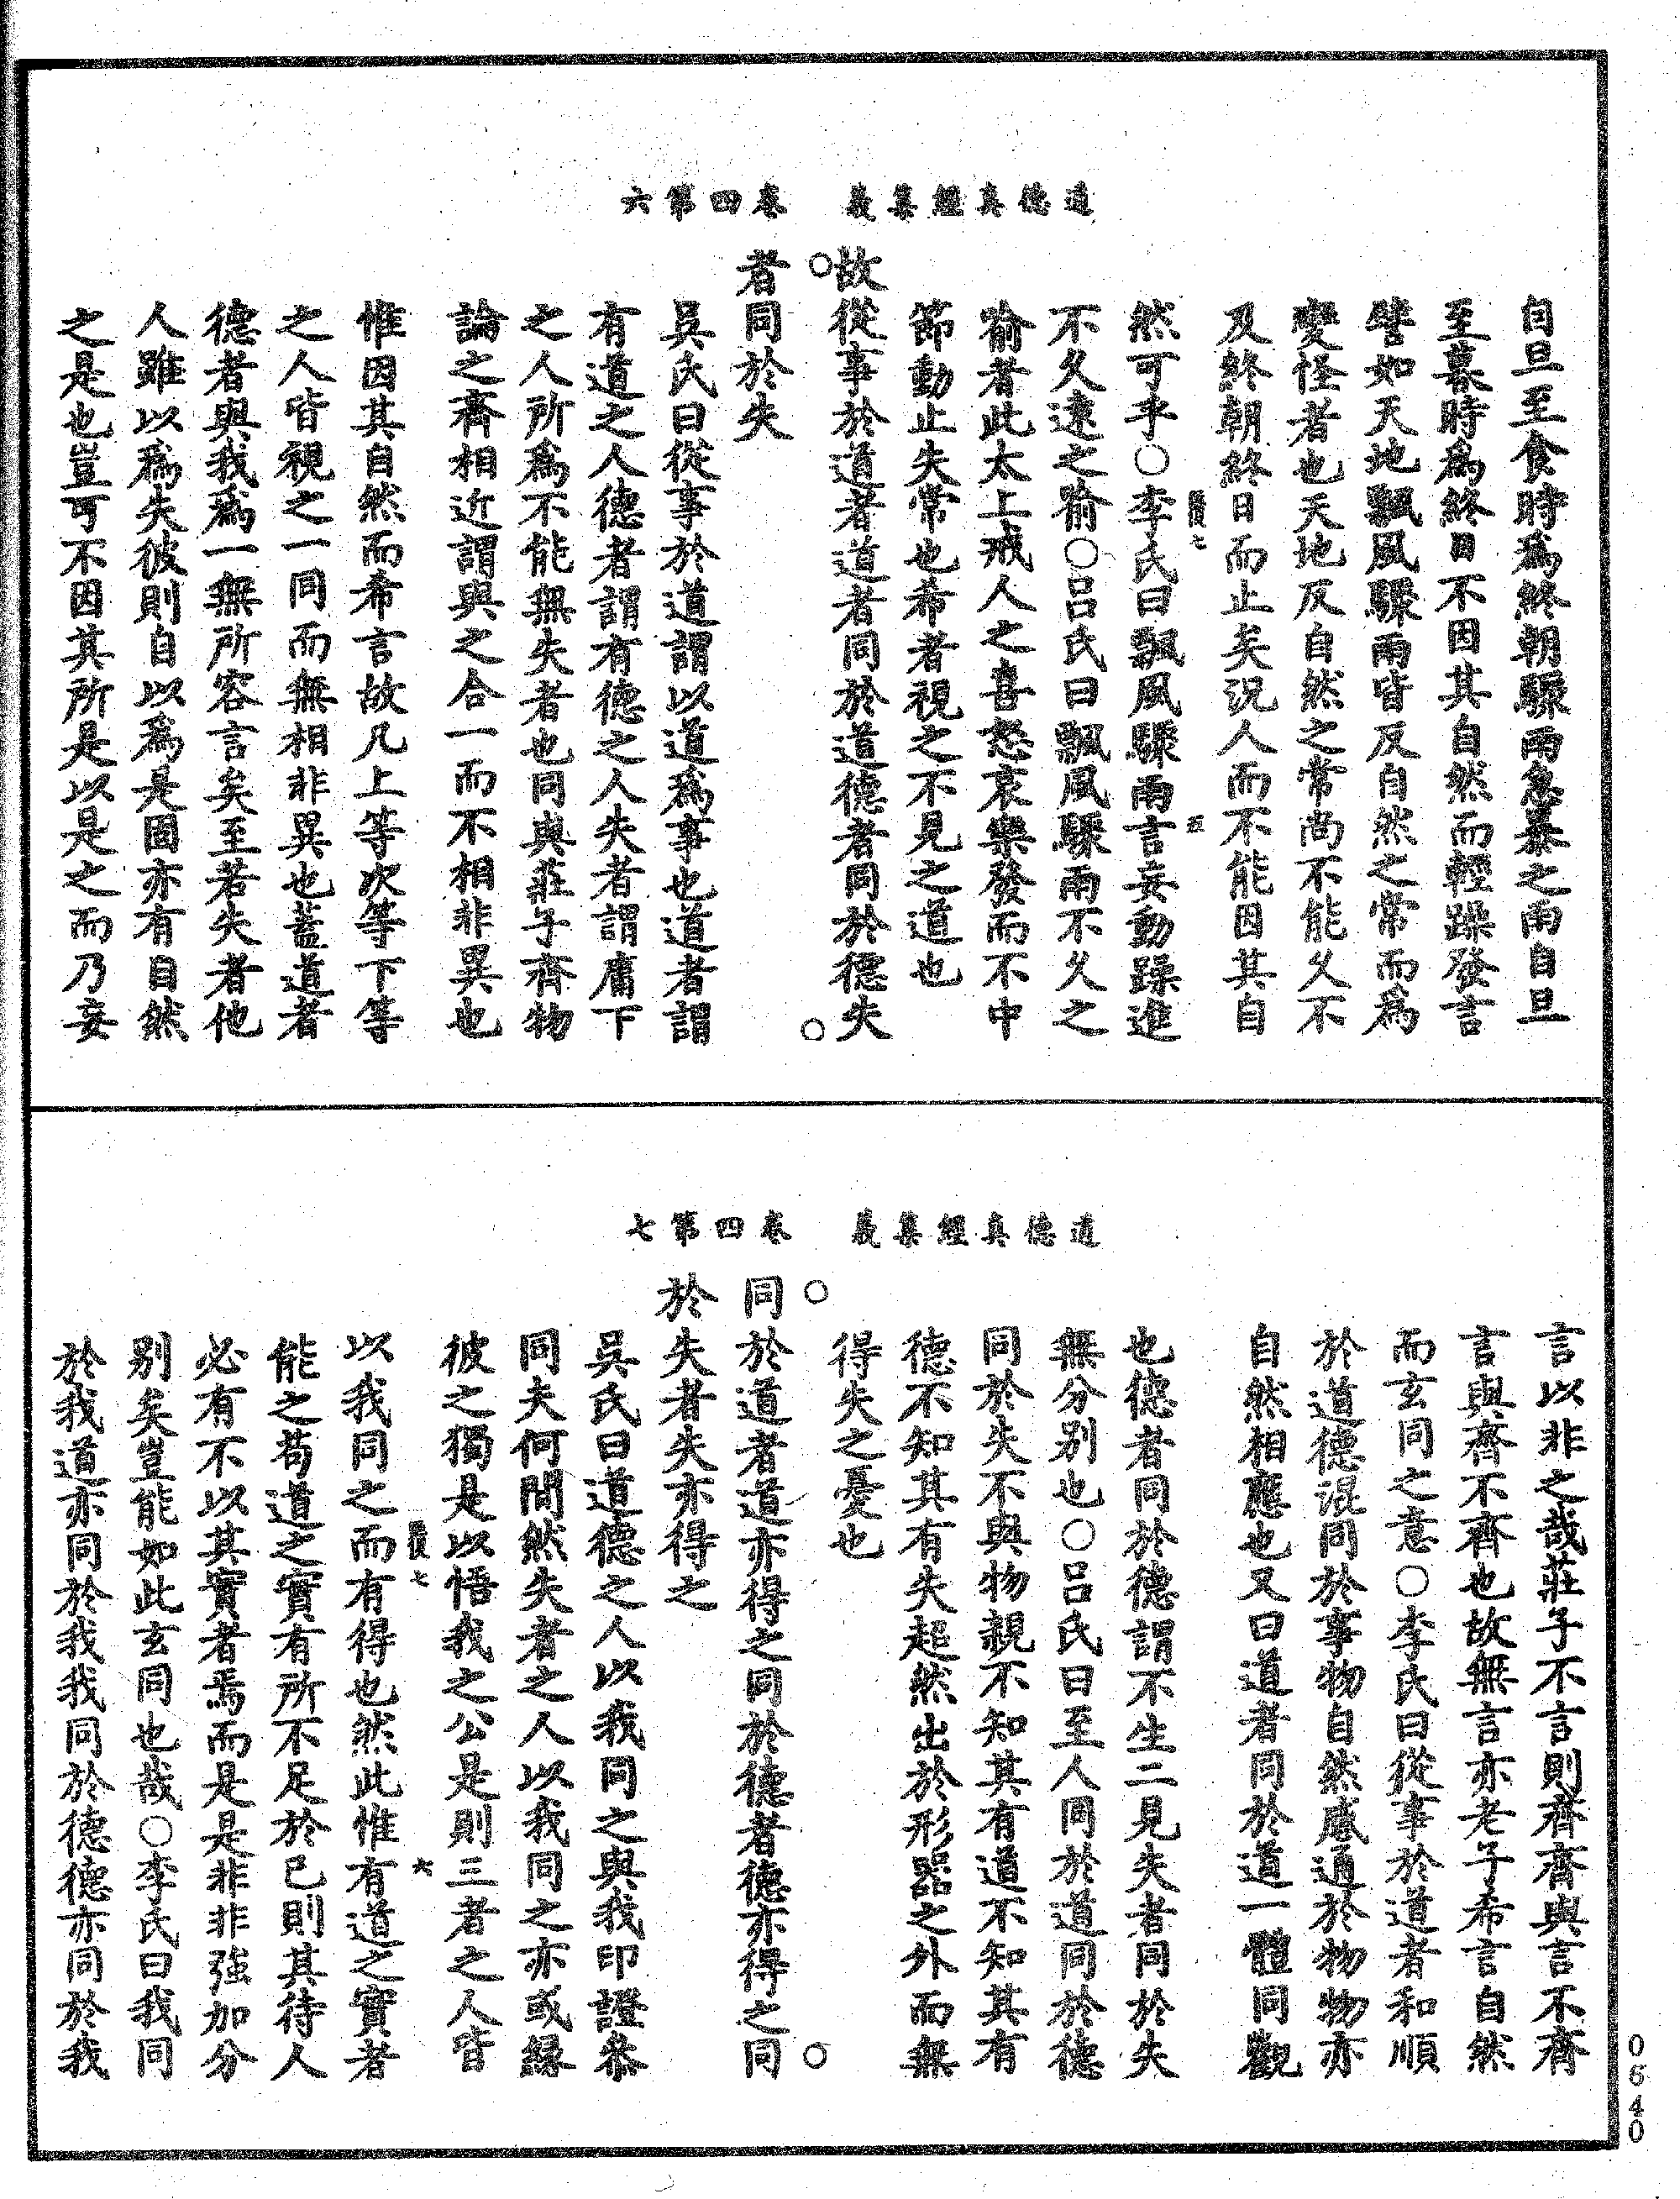 道德真經集義　卷四第六
自旦至食時為終朝驟雨急暴之雨自旦
至暮時為終日不因其自然而輕躁發言
譬如天地飄風驟雨皆反自然之常而為
變怪者也天地反自然之常尚不能久不
及終朝終日而止矣況人而不能因其自
然可乎○李氏曰飄風驟雨言妄動躁進
不久速之喻○呂氏曰飄風驟雨不久之
喻者此太上戒人之喜怒哀樂發而不中
節動止失常也希者視之不見之道也
故從事於道者道者同於道德者同於德失
○　○
者同於失
吳氏曰從事於道謂以道為事也道者謂
有道之人德者謂有德之人失者謂庸下
之人所為不能無失者也同與莊子齊物
論之齊相近謂與之合一而不相非異也
惟因其自然而希言故凡上等次等下等
之人皆視之一同而無相非異也蓋道者
德者與我為一無所容言矣至若失者他
人雖以為失彼則自以為是固亦有自然
之是也豈可不因其所是以是之而乃妄
道德真經集義　卷四第七
言以非之哉莊子不言則齊齊與言不齊
言與齊不齊也故無言亦老子希言自然
而玄同之意○李氏曰從事於道者和順
於道德混同於事物自然感通於物物亦
自然相應也又曰道者同於道一體同觀
也德者同於德謂不生二見失者同於失
無分別也○呂氏曰至人同於道同於德
同於失不與物親不知其有道不知其有
德不知其有失起然出於形器之外而無
得失之憂也
○　○
同於道者道亦得之同於德者德亦得之同
於失者失亦得之
吳氏曰道德之人以我同之與我印證參
同夫何間然失者之人以我同之亦或緣
彼之獨是以悟我之公是則三者之人皆
以我同之而有得也然此惟有道之實者
能之苟道之實有所不足於己則其待人
必有不以其實者焉而是是非非強加分
別矣豈能如此玄同也哉○李氏曰我同
於我道亦同於我我同於德德亦同於我
0640